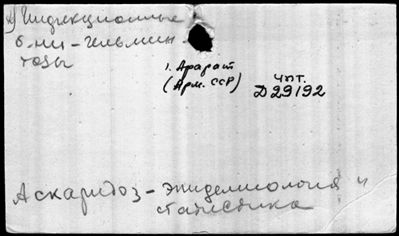 Инфекционные
б-ни - гельмин
тозы
1. Арарат
(Арм. ССР)
Чит.
Д29192
Аскаридоз - эпидемиология и
статистика